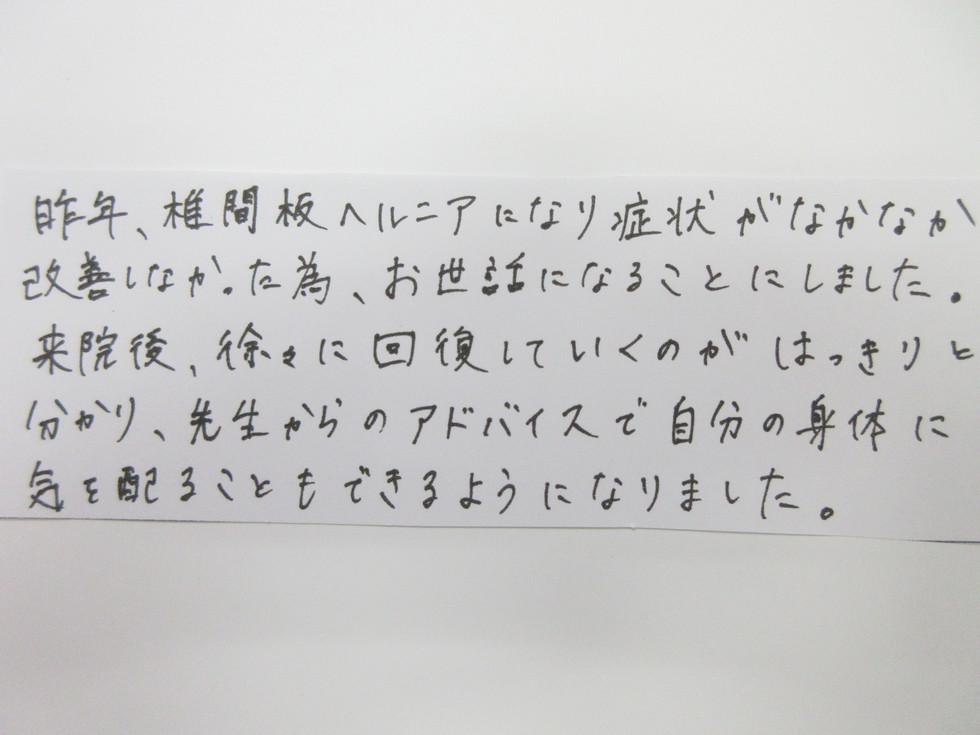 昨年、椎間板ヘルニアになり症状がなかなか
改善しなかった為、お世話になることにしました。
来院後、徐々に回復していくのがはっきりと
分かり、先生からのアドバイスで自分の身体に
気を配ることもできるようになりました。